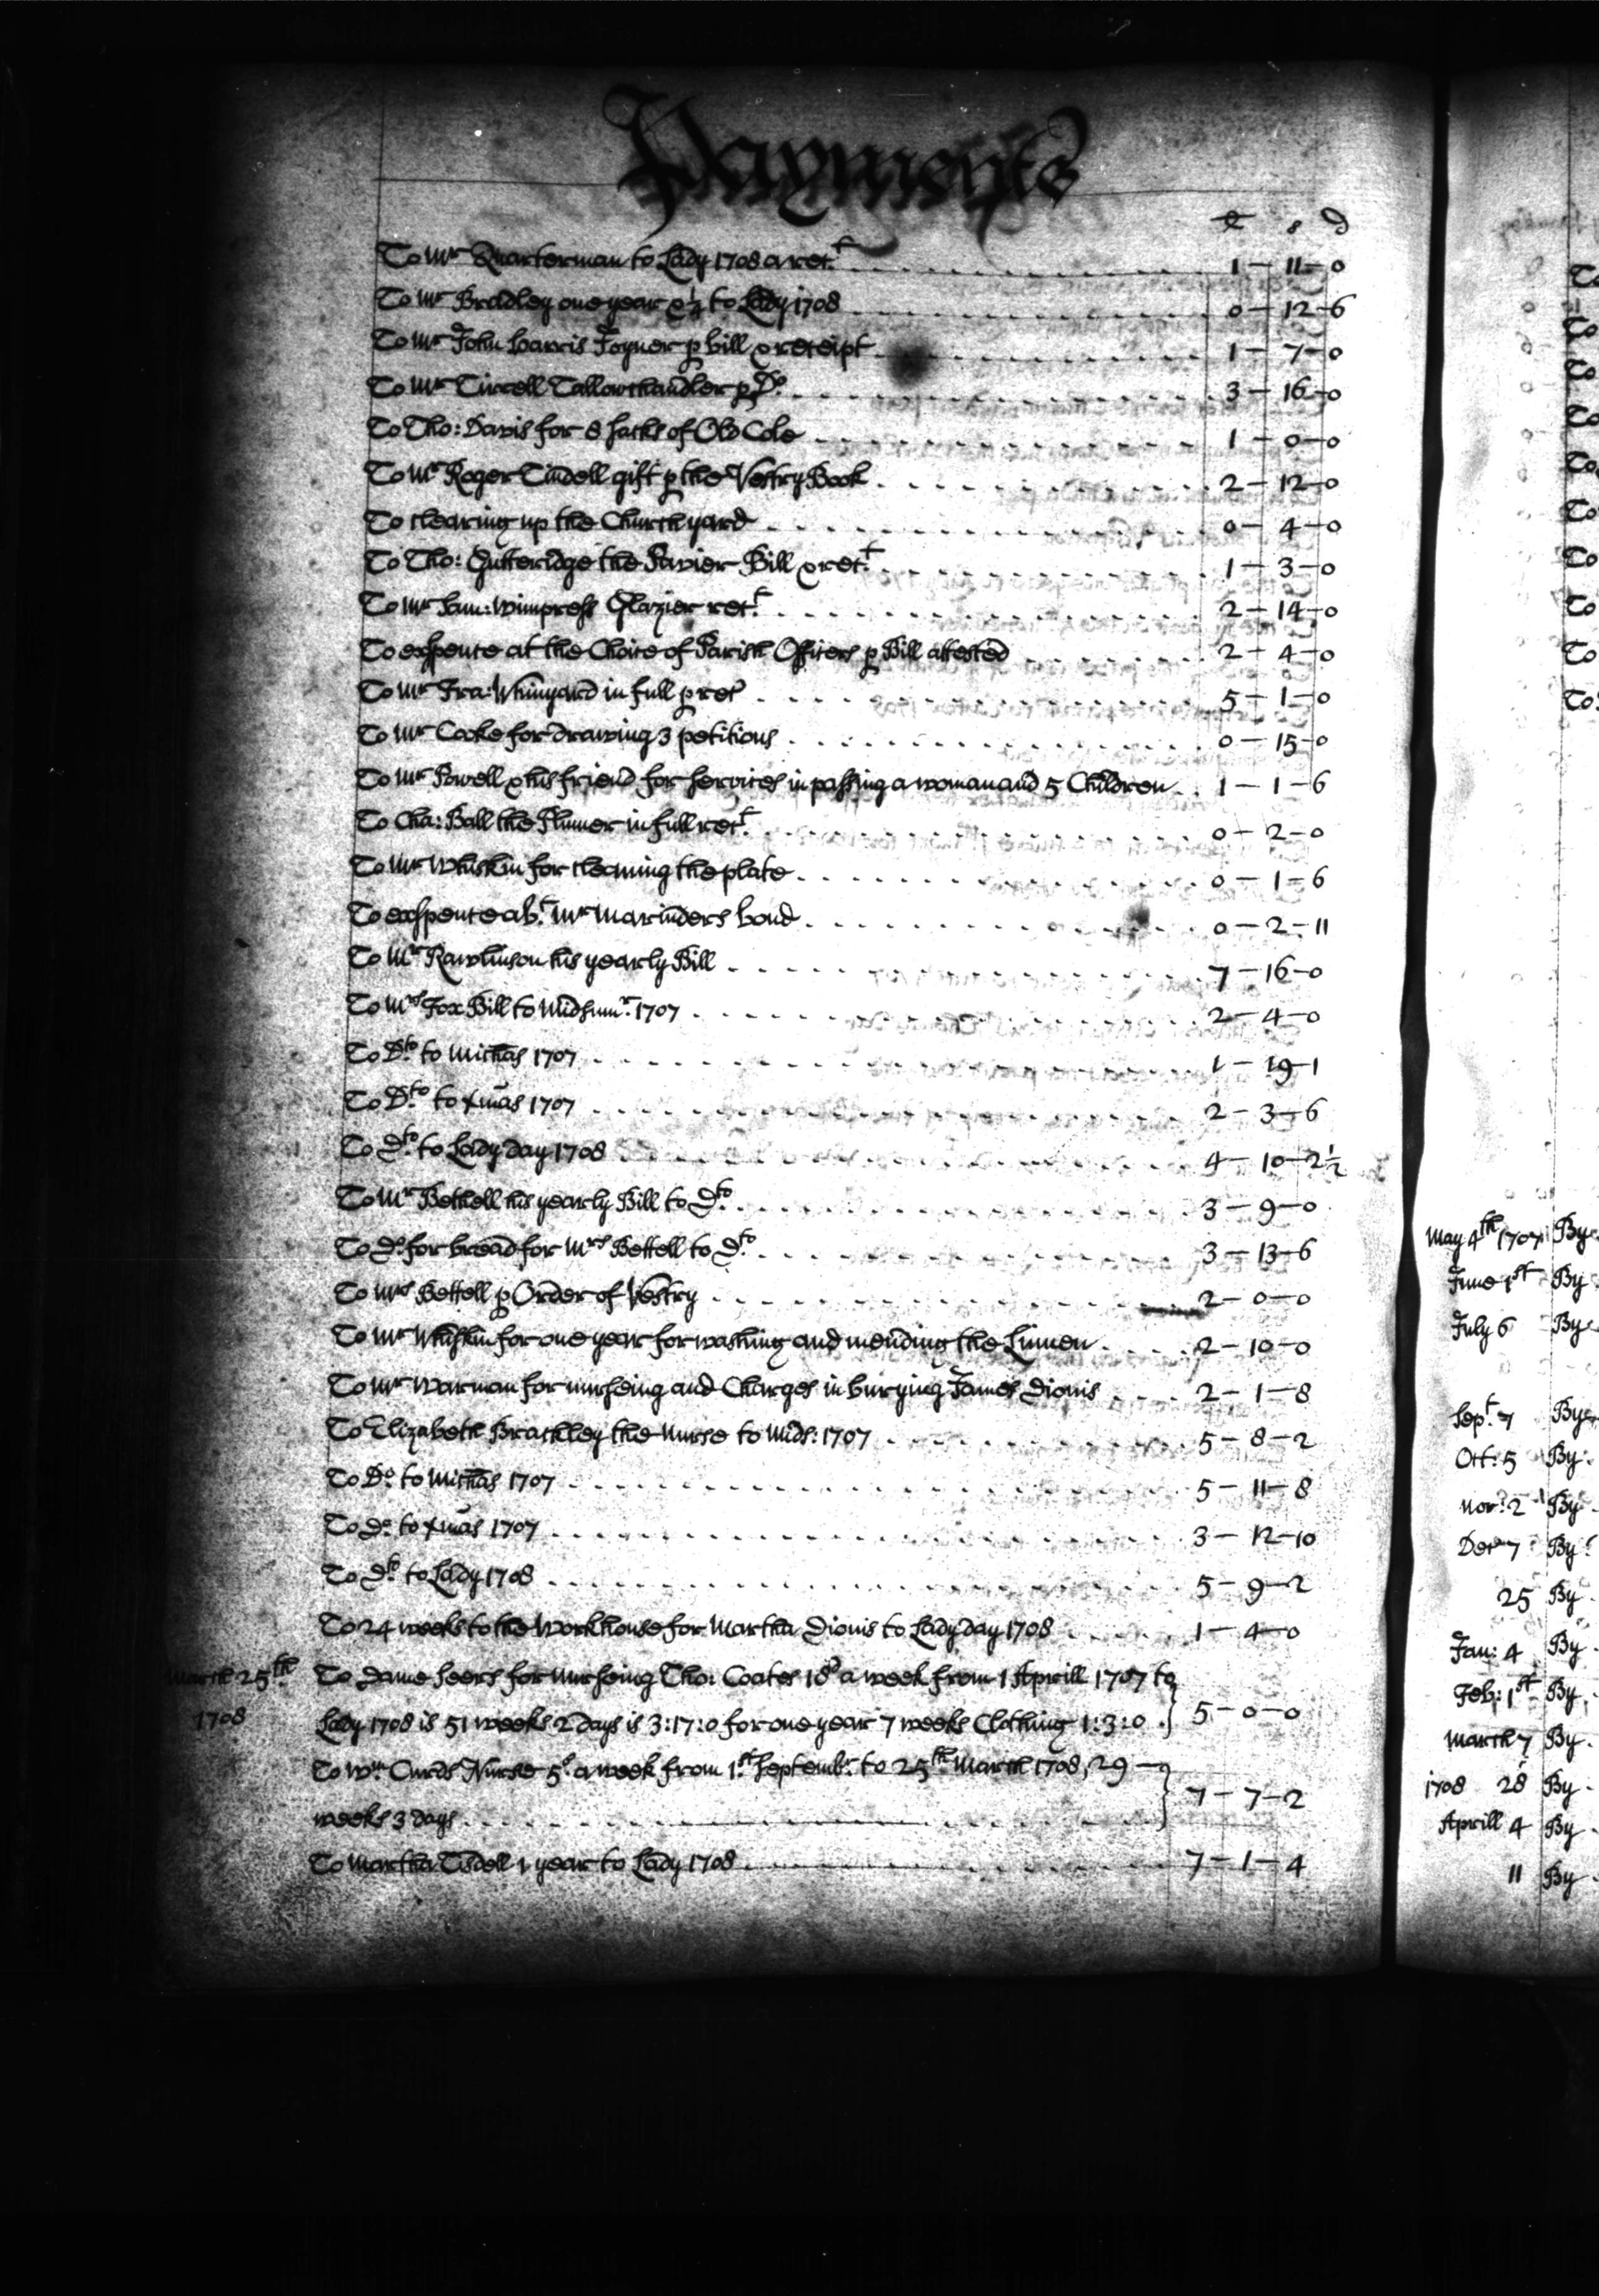 Payments
£ s D
To Mr Quarterman to Lady 1708 a rect. 1 - 11 - 0
To Mr Bradley one year & ½ to Lady 1708 0 - 12 - 6
To Mr John Harris Joyner p bill & receipt 1 - 7 - 0
To Mr Tirrell Tallowchandler p Do. 3 - 16 - 0
To Tho: Davis for 8 sacks of Old Cole 1 - 0 - 0
To Mr Roger Tindell gift p the Vestry Book 2 - 12 - 0
To clearing up the Church yard 0 - 4 - 0
To Tho: Gutteridge the Pavier Bill & rect. 1 - 3 - 0
To Mr Sam: Wimpress Glazier rect. 2 - 14 - 0
To expence at the Choice of Parish Officers p Bill attested 2 - 4 - 0
To Mr Fra: Whinyard in full p rect 5 - 1 - 0
To Mr Cooke for drawing 3 petitions 0 - 15 - 0
To Mr Powell & his friend for services in passing a woman and 5 Children 1 - 1 - 6
To Cha: Ball the Plumer in full rect. 0 - 2 - 0
To Mr Whiskin for cleaning the plate 0 - 1 - 6
To exspence abt. Mr Marinders bond 0 - 2 - 11
To Mr Rawlinson his yearly Bill 7 - 16 - 0
To Mrs Fox Bill to Midsumr. 1707 2 - 4 - 0
To Dto to Michas 1707 1 - 19 - 1
To Dto to Xmas 1707 2 - 3 - 6
To Dto to Lady day 1708 4 - 10 - 2½
To Mr Bethell his yearly Bill to Dto 3 - 9 - 0
To Do for bread for Mrs Bettell to Dto 3 - 13 - 6
To Mrs Bettell p Order of Vestry 2 - 0 - 0
To Mr Whiskin for one year for washing and mending the Linnen 2 - 10 - 0
To Mr Warman for nurseing and Charges in burying James Dionis 2 - 1 - 8
To Elizabeth Brackley the Nurse to Mids: 1707 5 - 8 - 2
To Do to Michas 1707 5 - 11 - 8
To Do to Xmas 1707 3 - 12 - 10
To Dto to Lady 1708 5 - 9 - 2
To 24 weeks to the Workhouse for Martha Dionis to Lady day 1708 1 - 4 - 0
March 25th To Dame Seers for nurseing Tho: Coates 18d a week from 1 Aprill 1707 to
1708 Lady 1708 is 51 weeks 2 days is 3:17:0 for one year 7 weeks Clothing 1:3:0 } 5 - 0 - 0
To Wm. Curds Nurse 5s a week from 1st. Septembr. to 25th March 1708, 29
weeks 3 days } 7 - 7 - 2
To Martha Tisdell 1 year to Lady 1708 7 - 1 - 4
To
To
To
To
To
To
To
To
To
To
May 4th 1707 By
June 1st By
July 6 By
Sept. 7 By
Oct: 5 By
Nov: 2 By
Decr 7 By
25 By
Jan: 4 By
Feb: 1st By
March 7 By
1708 28 By
Aprill 4 By
11 By